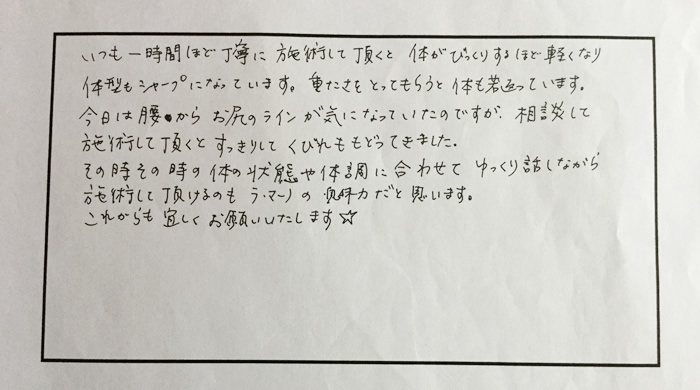 いつも一時間ほど丁寧に施術して頂くと体がびっくりするほど軽くなり
体型もシャープになっています。重たさをとってもらうと体も若返っています。
今日は腰からお尻のラインが気になっていたのですが、相談して
施術して頂くとすっきりしてくびれももどってきました。
その時その時の体の状態や体調に合わせてゆっくり話しながら
施術して頂けるのもラ・マーノの魅力だと思います。
これからも宜しくお願いいたします☆